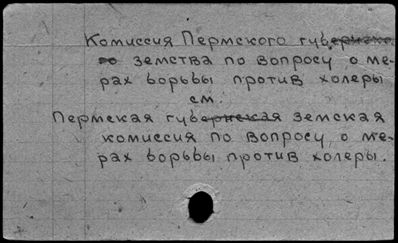 Комиссия Пермского губернско-
го земства по вопросу о ме-
рах борьбы против холеры
см.
Пермская губернская земская
комиссия по вопросу о ме-
рах борьбы против холеры.